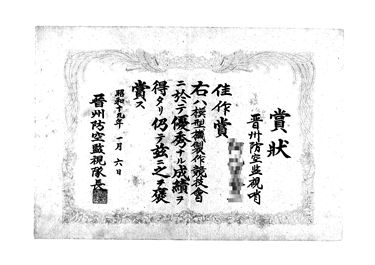 賞状
晋州防空監視哨
佳作賞
右ハ模型機製作競技會
ニ於テ優秀ナル成績ヲ
得タリ仍テ茲ニ之ヲ褒
賞ス
昭和十九年一月六日
晋州防空監視隊長